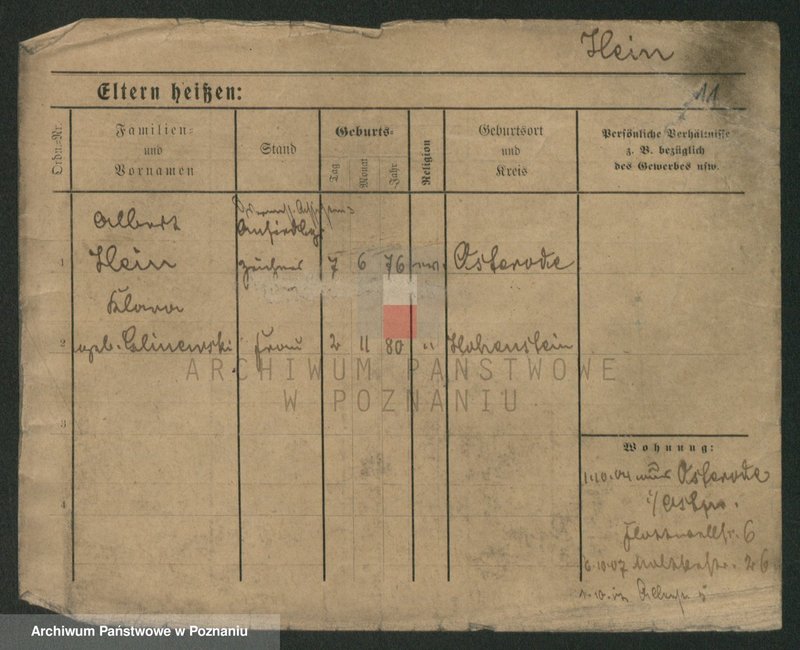 Hein
11
Eltern heißen:
Ordn.-Nr.
Familien- und Vornamen
Stand
Geburts-
Tag
Monat
Jahr
Religion
Geburtsort und Kreis
Persönliche Verhältnisse
z. B. bezüglich
des Gewerbes usw.
Albert
1 Hein zeichner 7 6 76 ev. Osterode
Klara
2 geb. Glinewski Frau 2 11 80 " Hohenstein
ARCHIWUM PAŃSTWOWE
W POZNANIU
3
4
Wohnung:
1.10.04 aus Osterode
i/Ostpr.
Flottwellstr. 6
6.10.07 Moltkestr. 26
Archiwum Państwowe w Poznaniu